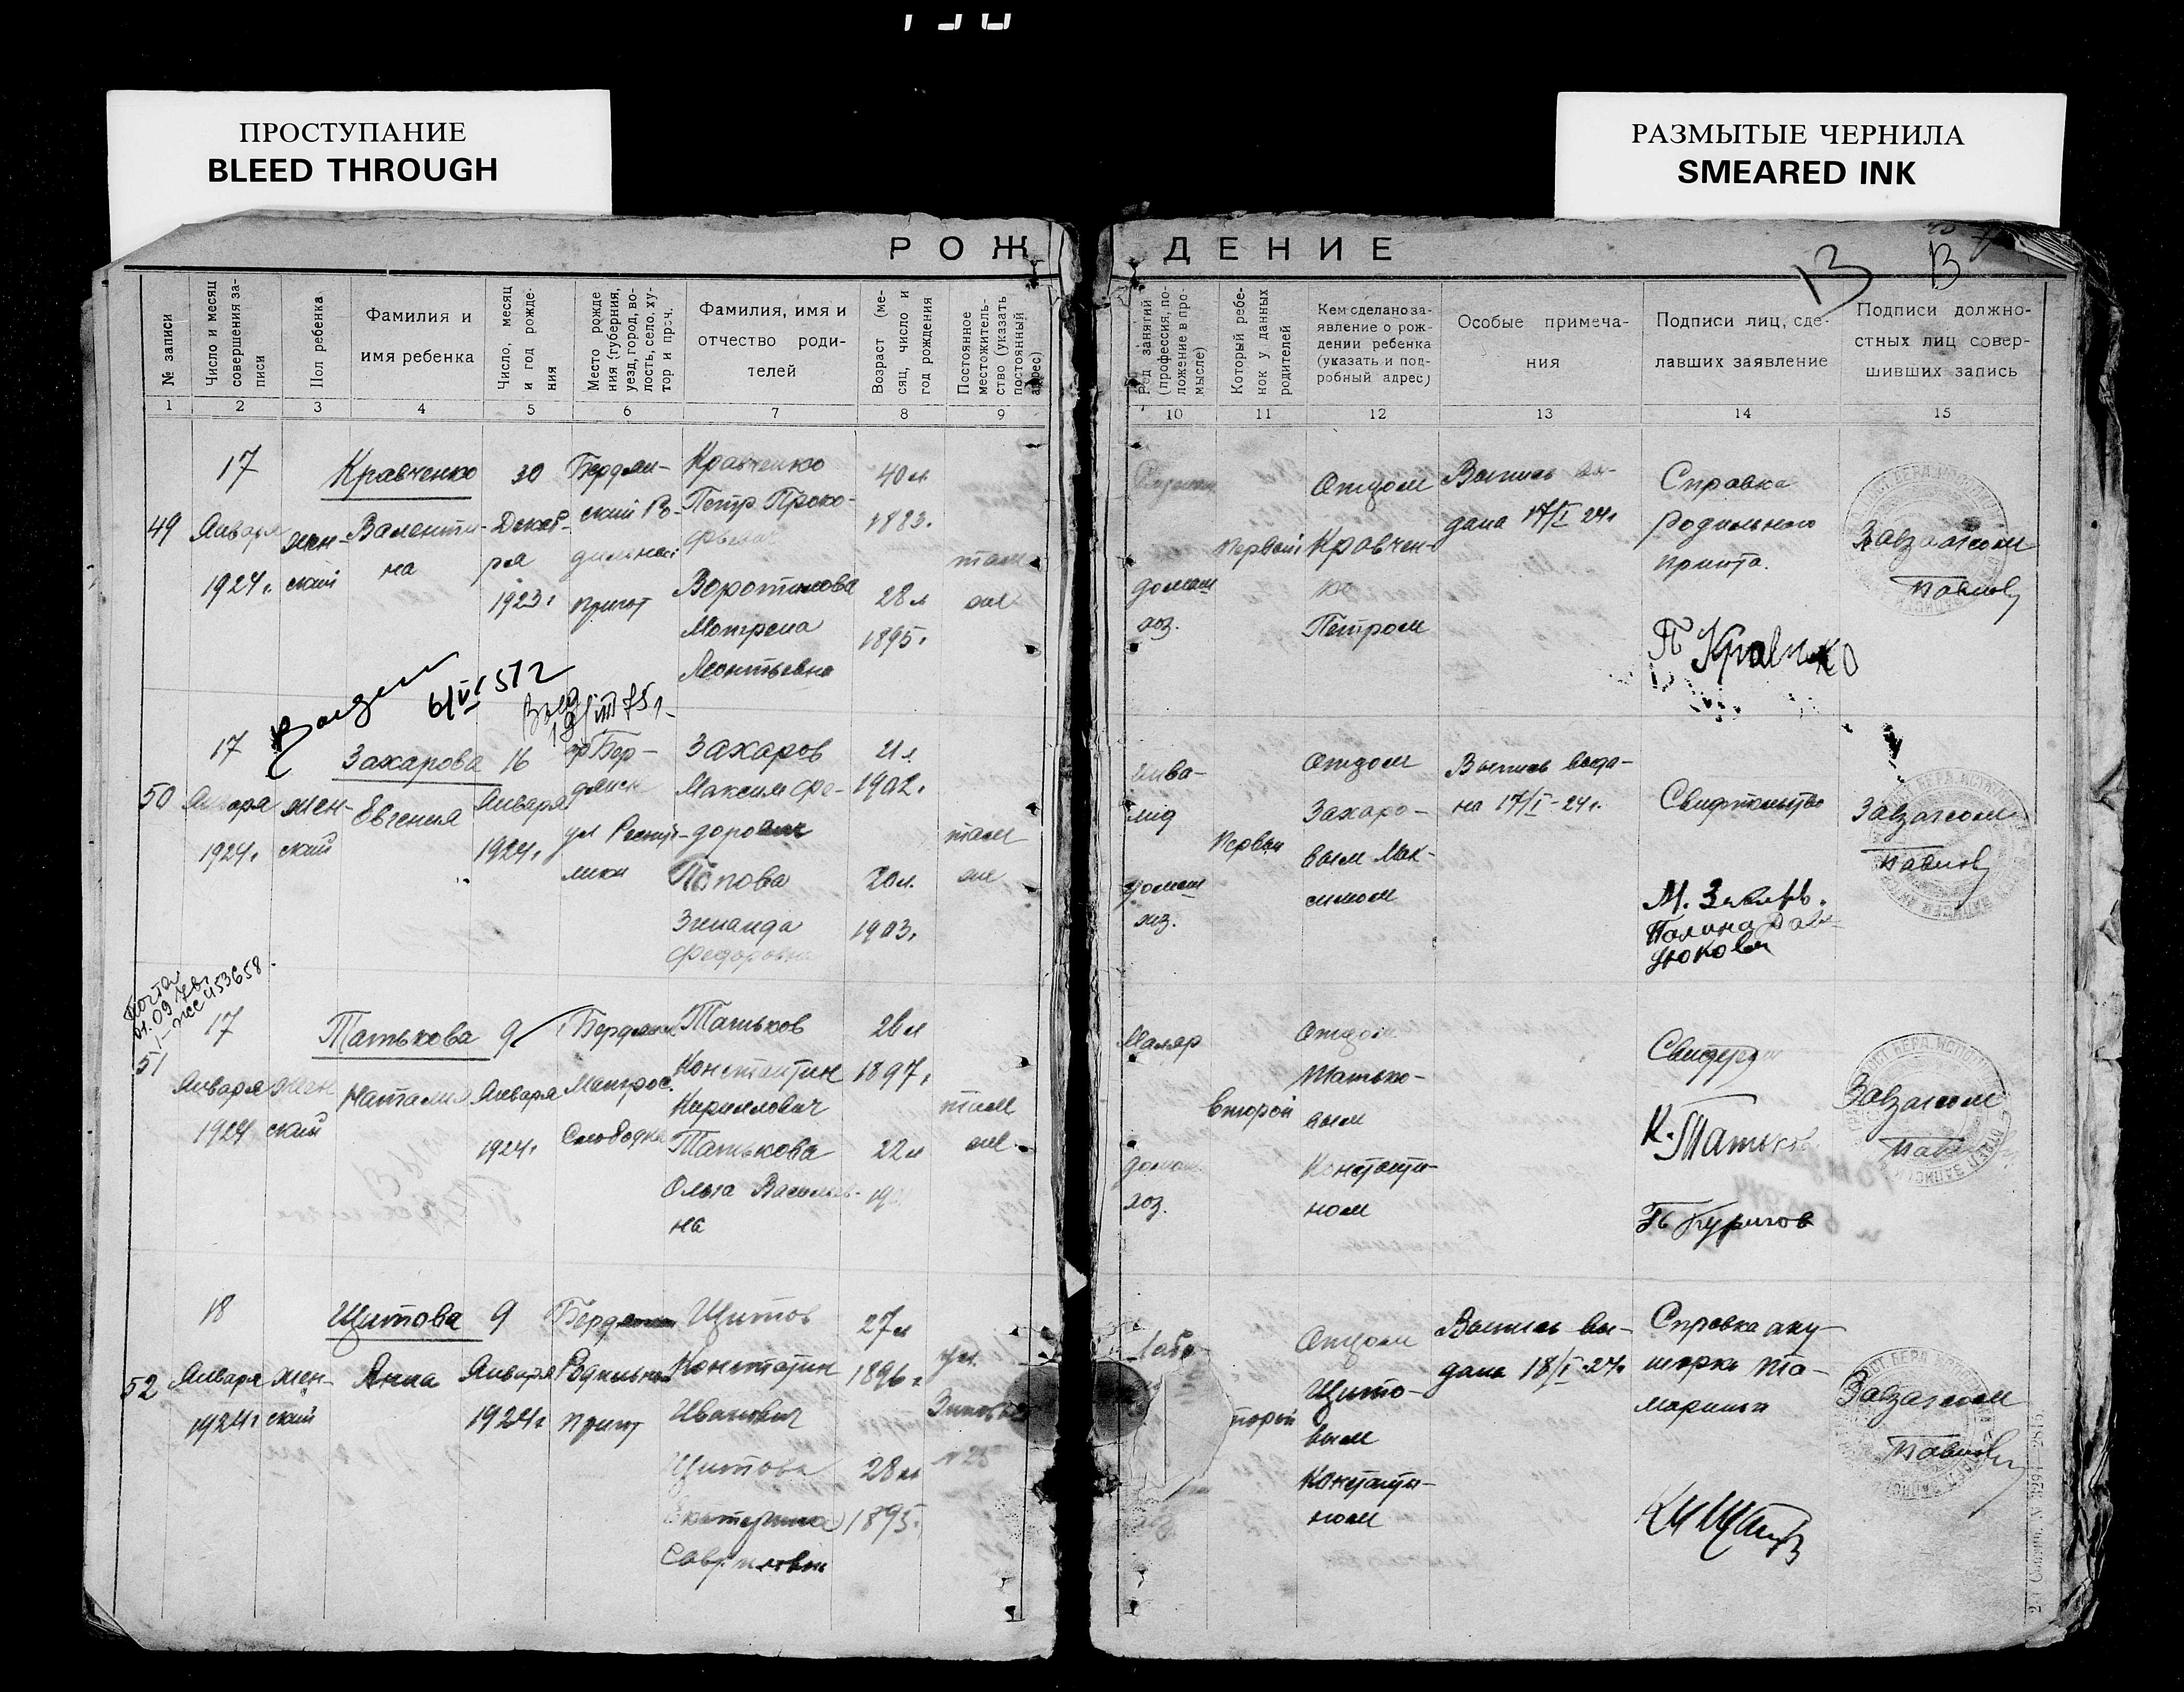 ПРОСТУПАНИЕ
BLEED THROUGH
РАЗМЫТЫЕ ЧЕРНИЛА
SMEARED INK
РОЖ
ДЕНИЕ
В
В
№ записи
Число и месяц
совершения за-
писи
Пол ребенка
Фамилия и
имя ребенка
Число, месяц
и год рожде-
ния
Место рожде
ния (губерния,
уезд, город, во-
лость, село, ху-
тор и проч.
Фамилия, имя и
отчество роди-
телей
Возраст (ме-
сяц, число и
год рождения
Постоянное
местожитель-
ство (указать
постоянный
адрес)
Род занятий
(профессия, по-
ложение в про-
мысле)
Который ребе-
нок у данных
родителей
Кем сделано за-
явление о рож-
дении ребенка
(указать и под-
робный адрес)
Особые примеча-
ния
Подписи лиц, сде-
лавших заявление
Подписи должно-
стных лиц совер-
шивших запись
1 2 3 4 5 6 7 8 9
10 11 12 13 14 15
49
17
Января
1924 г.
жен-
ский
Кравченко
Валенти-
на
30
Декаб-
ря
1923 г
Бердян-
ский Ро-
дильный
приют
Кравченко
Петр Проко-
фьевич
Воротникова
Мотрена
Леонтьевна
40 л
1883.
28 л
1895 г
там
же
домаш
хоз.
Первый
Отцом
Кравчен-
ко
Петром
Выпись вы-
дана 17/I 24 г
Справка
Родильного
приюта.
П Кравченко
Завзагсом
Павлов
6/VI 51 г
50
17
Января
1924 г.
жен-
ский
Захарова
Евгения
16
Января
1924 г.
гр Бер-
дянск
ул Респуб-
лики
Захаров
Максим Фе-
дорович
Попова
Зинаида
Федоровна
21 л
1902 г.
20 л.
1903 г.
там
же
Инва-
лид
домаш
хоз.
Первый
Отцом
Захаро-
вым Мак-
симом
Выпись выда-
на 17/I - 24 г.
Свидетельство
М. Захаров.
Завзагсом
Павлов
51
17
Января
1924
жен
ский
Татькова
Наталия
9
Января
1924 г.
Бердянск
Матрос.
Слободка
Татьков
Константин
Кириллович
Татькова
Ольга Василь-
на
26 л
1897 г
22 л
там
же
Маляр
домаш
хоз.
второй
Отцом
Татько-
вым
Константи-
ном
К. Татьков
Завзагсом
Павлов
52
18
Января
1924 г
жен-
ский
Щитова
Анна
9
Января
1924 г
Бердянск
Родильный
приют
Щитов
Константин
Иванович
Щитова
Екатерина
Савриловна
27 л
1896 г
28 л
1895.
ул.
№ 25
Отцом
Щито-
вым
Константи-
ном
Выпись вы-
дана 18/I 24 г
Справка аку-
шерки Та-
Завзагсом
Павлов